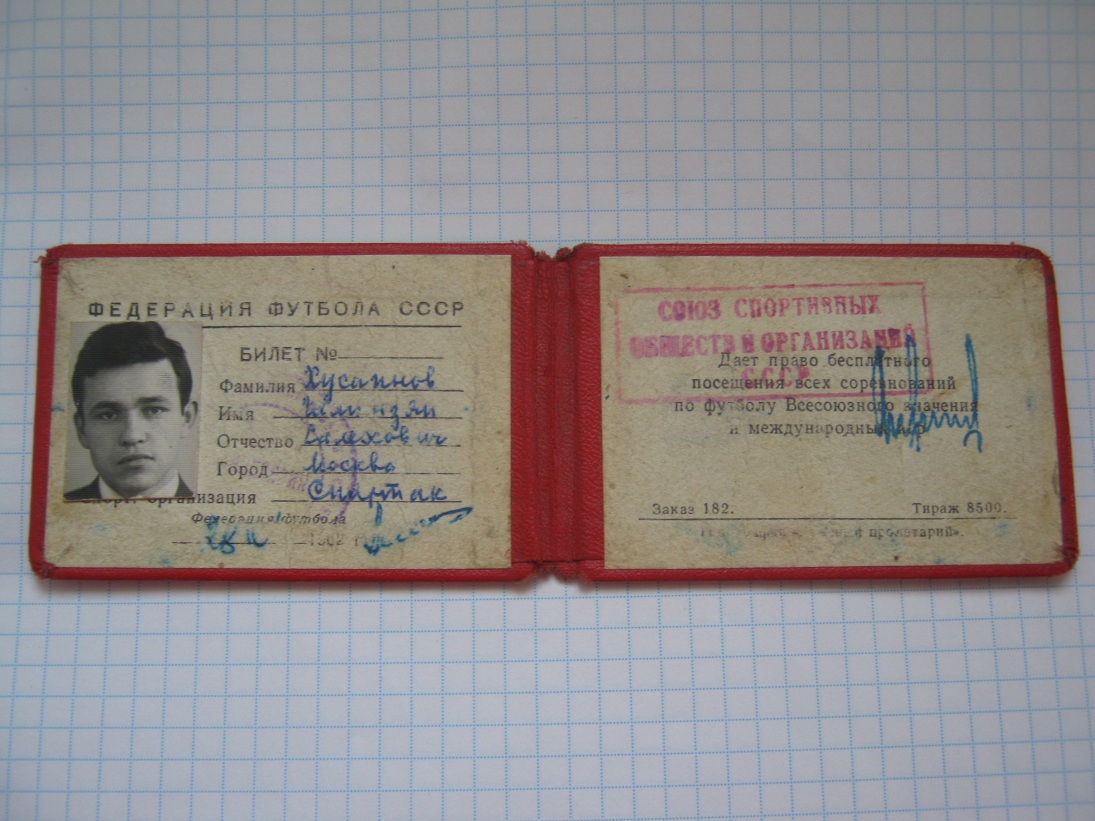 ФЕДЕРАЦИЯ ФУТБОЛА СССР
БИЛЕТ №
Фамилия Хусаинов
Имя
Отчество Салехович
Город Москва
Спорт. организация Спартак
Федерация футбола
1962
СОЮЗ СПОРТИВНЫХ
ОБЩЕСТВ И ОРГАНИЗАЦИЙ
СССР
Дает право бесплатного
посещения всех соревнований
по футболу Всесоюзного значения
и международных
Заказ 182. Тираж 8500.
пролетарий».